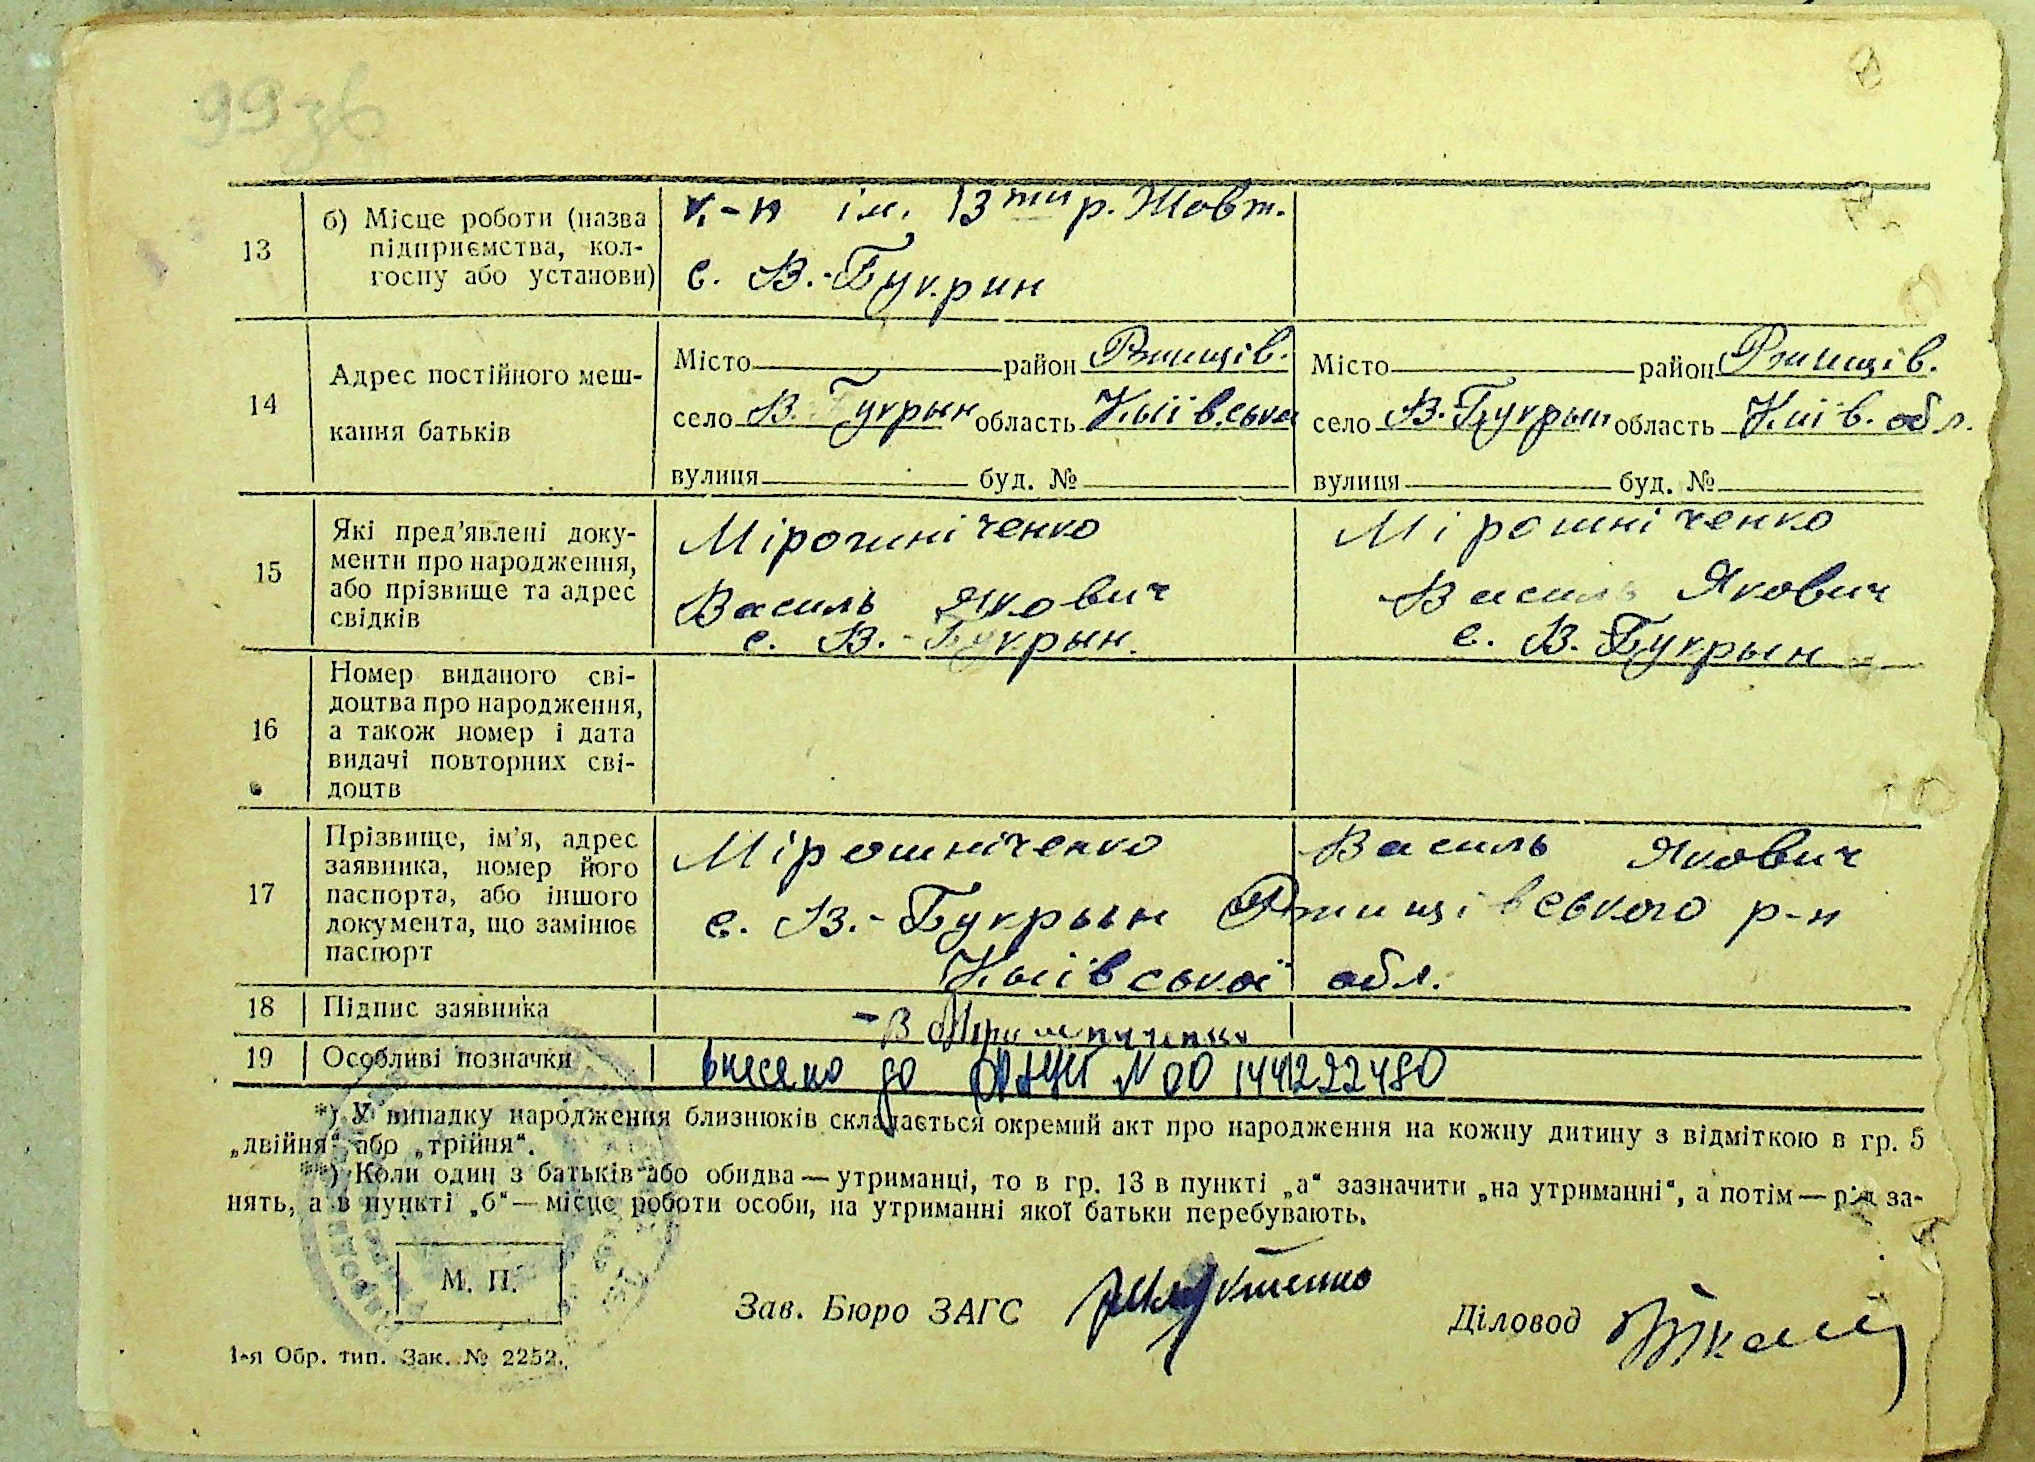 99 зв
13
б) Місце роботи (назва
підприємства, кол-
госпу або установи)
к-п ім. 13ти р. Жовт.
с. В.-Букрин
14
Адрес постійного меш-
кання батьків
Місто район Ржищів.
село В. Букрын область Київська
вулиця буд. №
Місто район Ржищів.
село В. Букрын область Київ. обл.
вулиця буд. №
15
Які пред’явлені доку-
менти про народження,
або прізвище та адрес
свідків
Мірошніченко
Василь Якович
с. В.-Букрын.
Мірошніченко
Василь Якович
с. В. Букрын
16
Номер виданого сві-
доцтва про народження,
а також номер і дата
видачі повторних сві-
доцтв
17
Прізвище, ім’я, адрес
заявника, номер його
паспорта, або іншого
документа, що замінює
паспорт
Мірошніченко Василь Якович
с. В.-Букрын Ржищівського р-н
Київської обл.
18
Підпис заявника
19
Особливі позначки
внесено до ДРАЦС N 00144222480
*) У випадку народження близнюків складається окремий акт про народження на кожну дитину з відміткою в гр. 5
„двійня“ або „трійня“.
**) Коли один з батьків або обидва — утриманці, то в гр. 13 в пункті „а“ зазначити „на утриманні“, а потім — рід за-
нять, а в пункті „б“ — місце роботи особи, на утриманні якої батьки перебувають.
М. П.
Зав. Бюро ЗАГС
Діловод
1-я Обр. тип. Зак. № 2252.